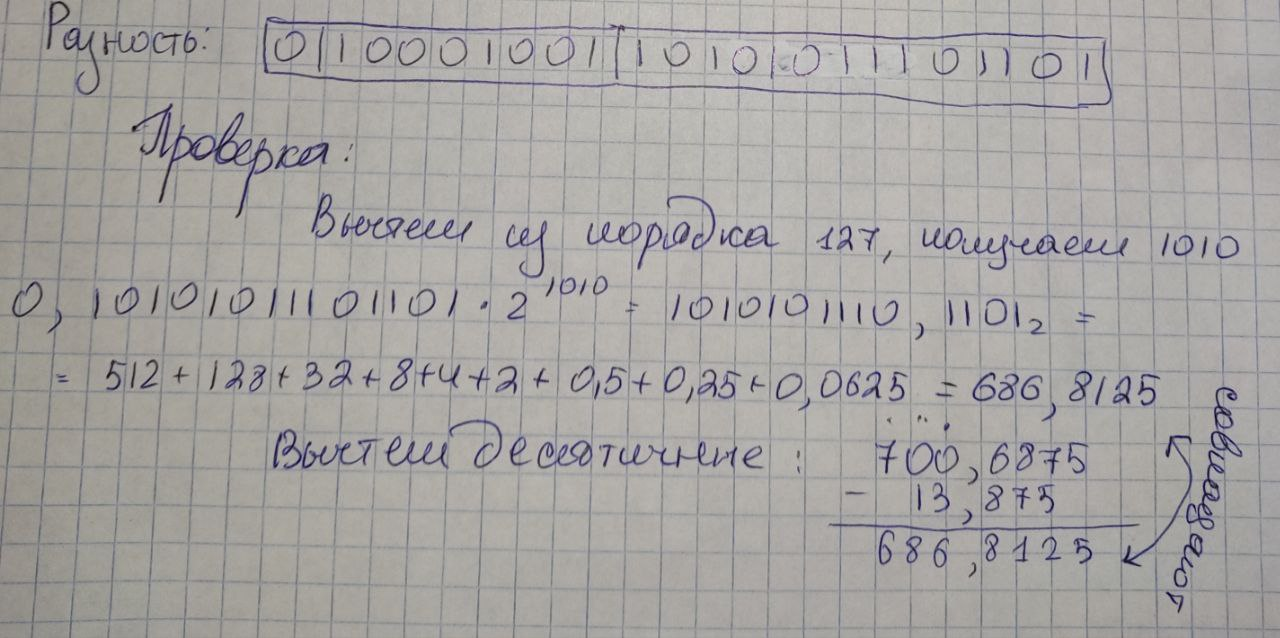 Разность: 0110001001 10101011101101
Проверка:
Вычтем из порядка 127, получаем 1010
0,10101011101101 · 2^1010 = 1010101110,1101₂ =
= 512 + 128 + 32 + 8 + 4 + 2 + 0,5 + 0,25 + 0,0625 = 686,8125
Вычтем десятичные : 700,6875
- 13,875
686,8125
совпадают